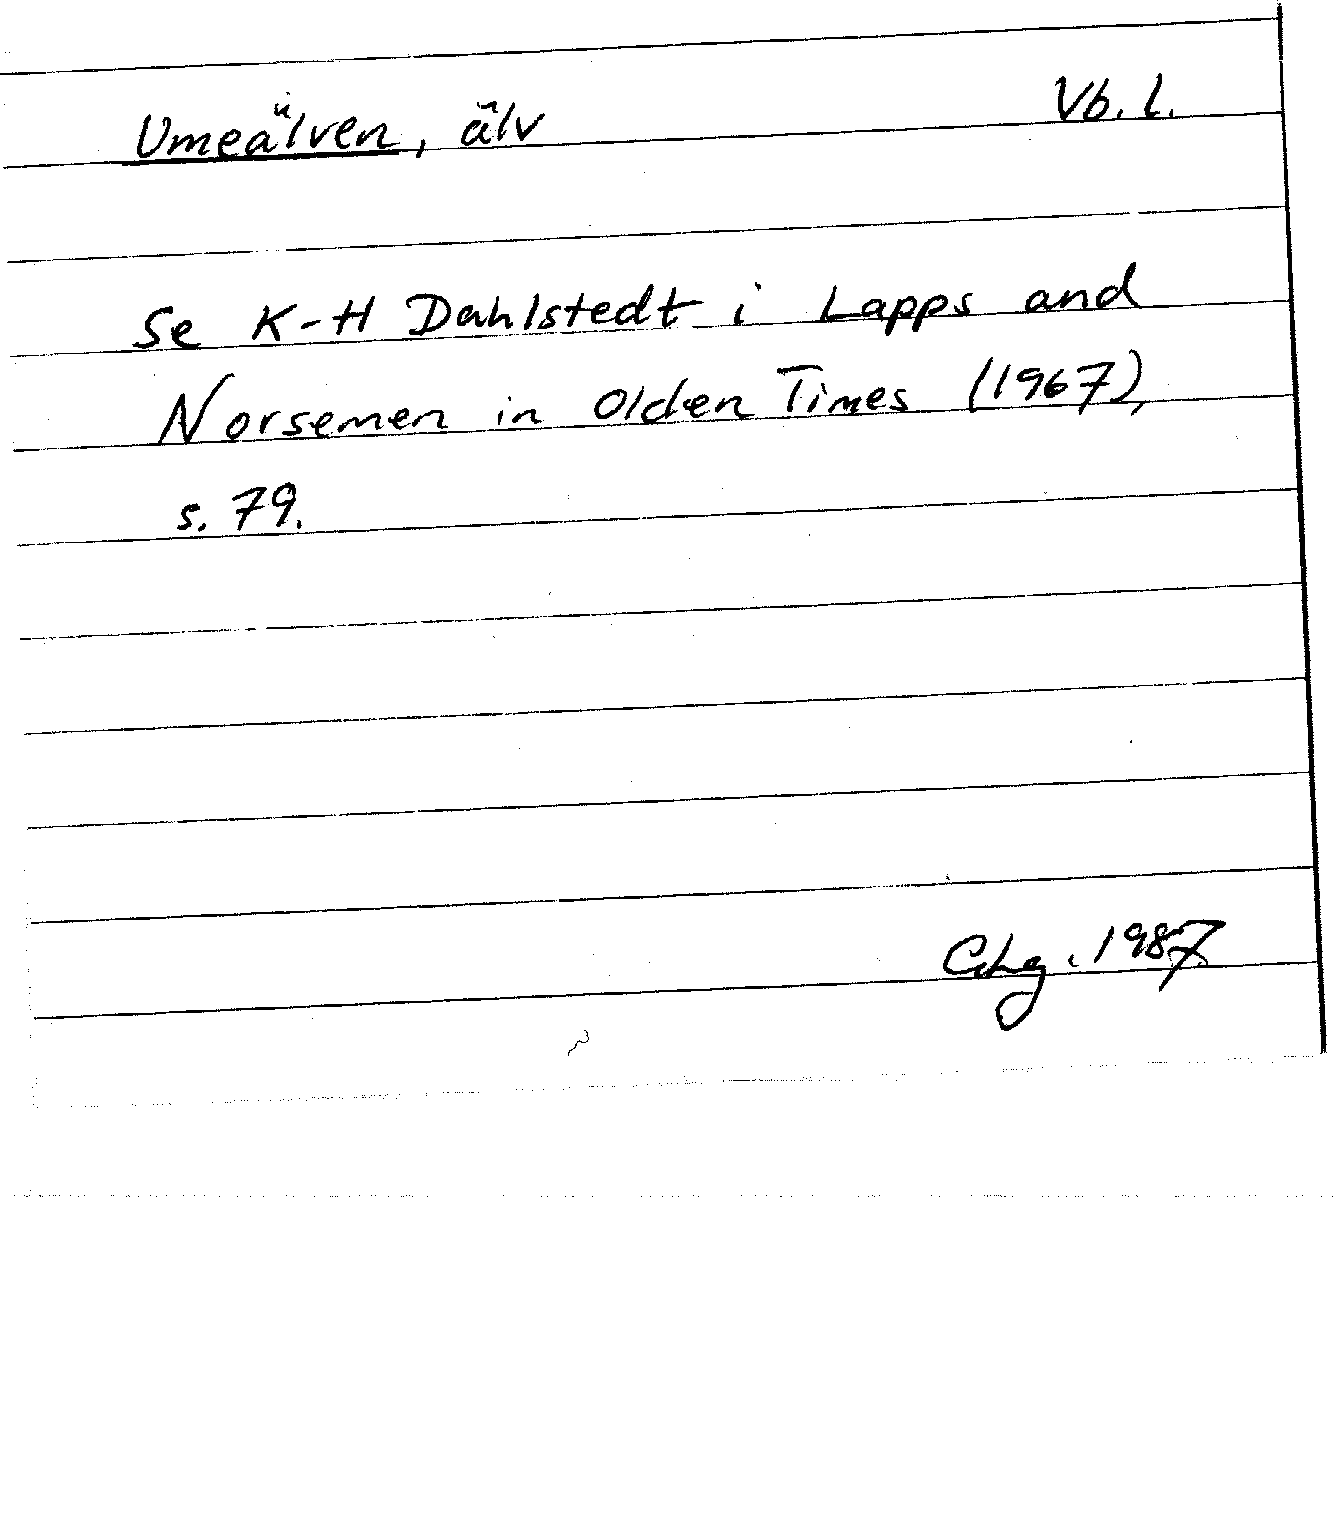 Umeälven, älv Vb. l.
Se K-H Dahlstedt i Lapps and
Norsemen in Olden Times (1967),
s. 79.
1987